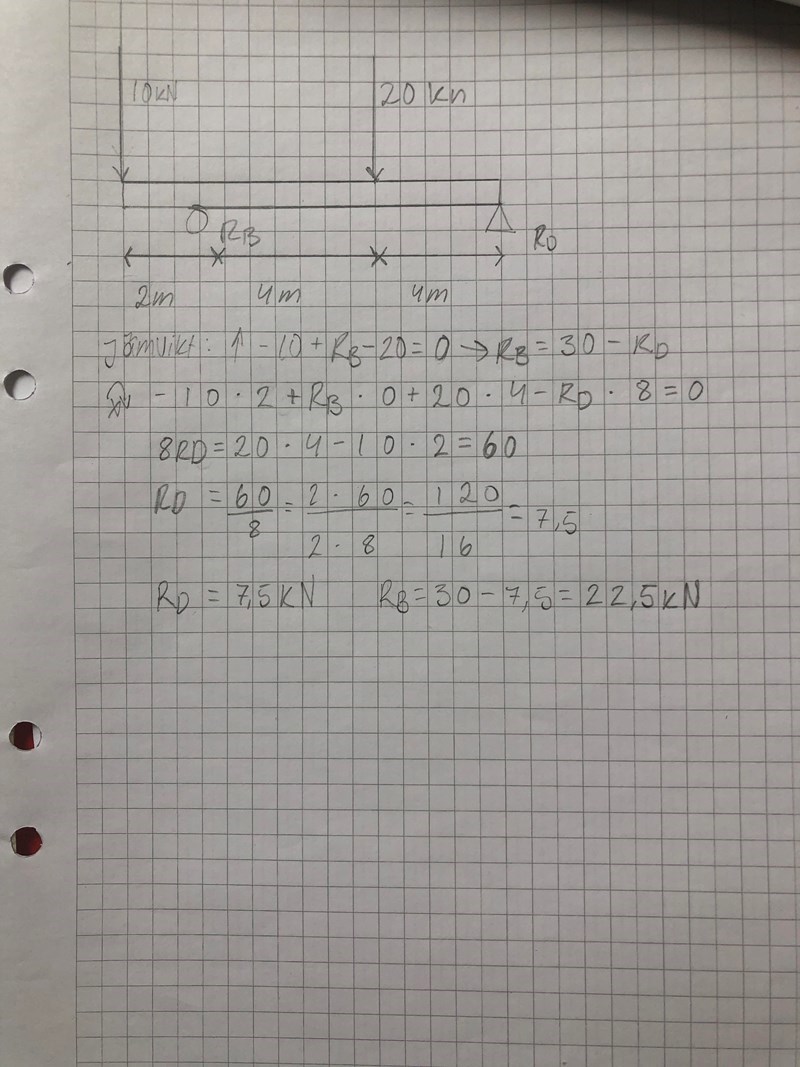 10kN 20 kn
RB RD
2m 4m 4m
Jämvikt: ↑ -10+RB-20=0 → RB=30-RD
-10·2+RB·0+20·4-RD·8=0
8RD=20·4-10·2=60
RD = 60/8 = 2·60/2·8 = 120/16 = 7,5
RD = 7,5KN RB=30-7,5=22,5kN